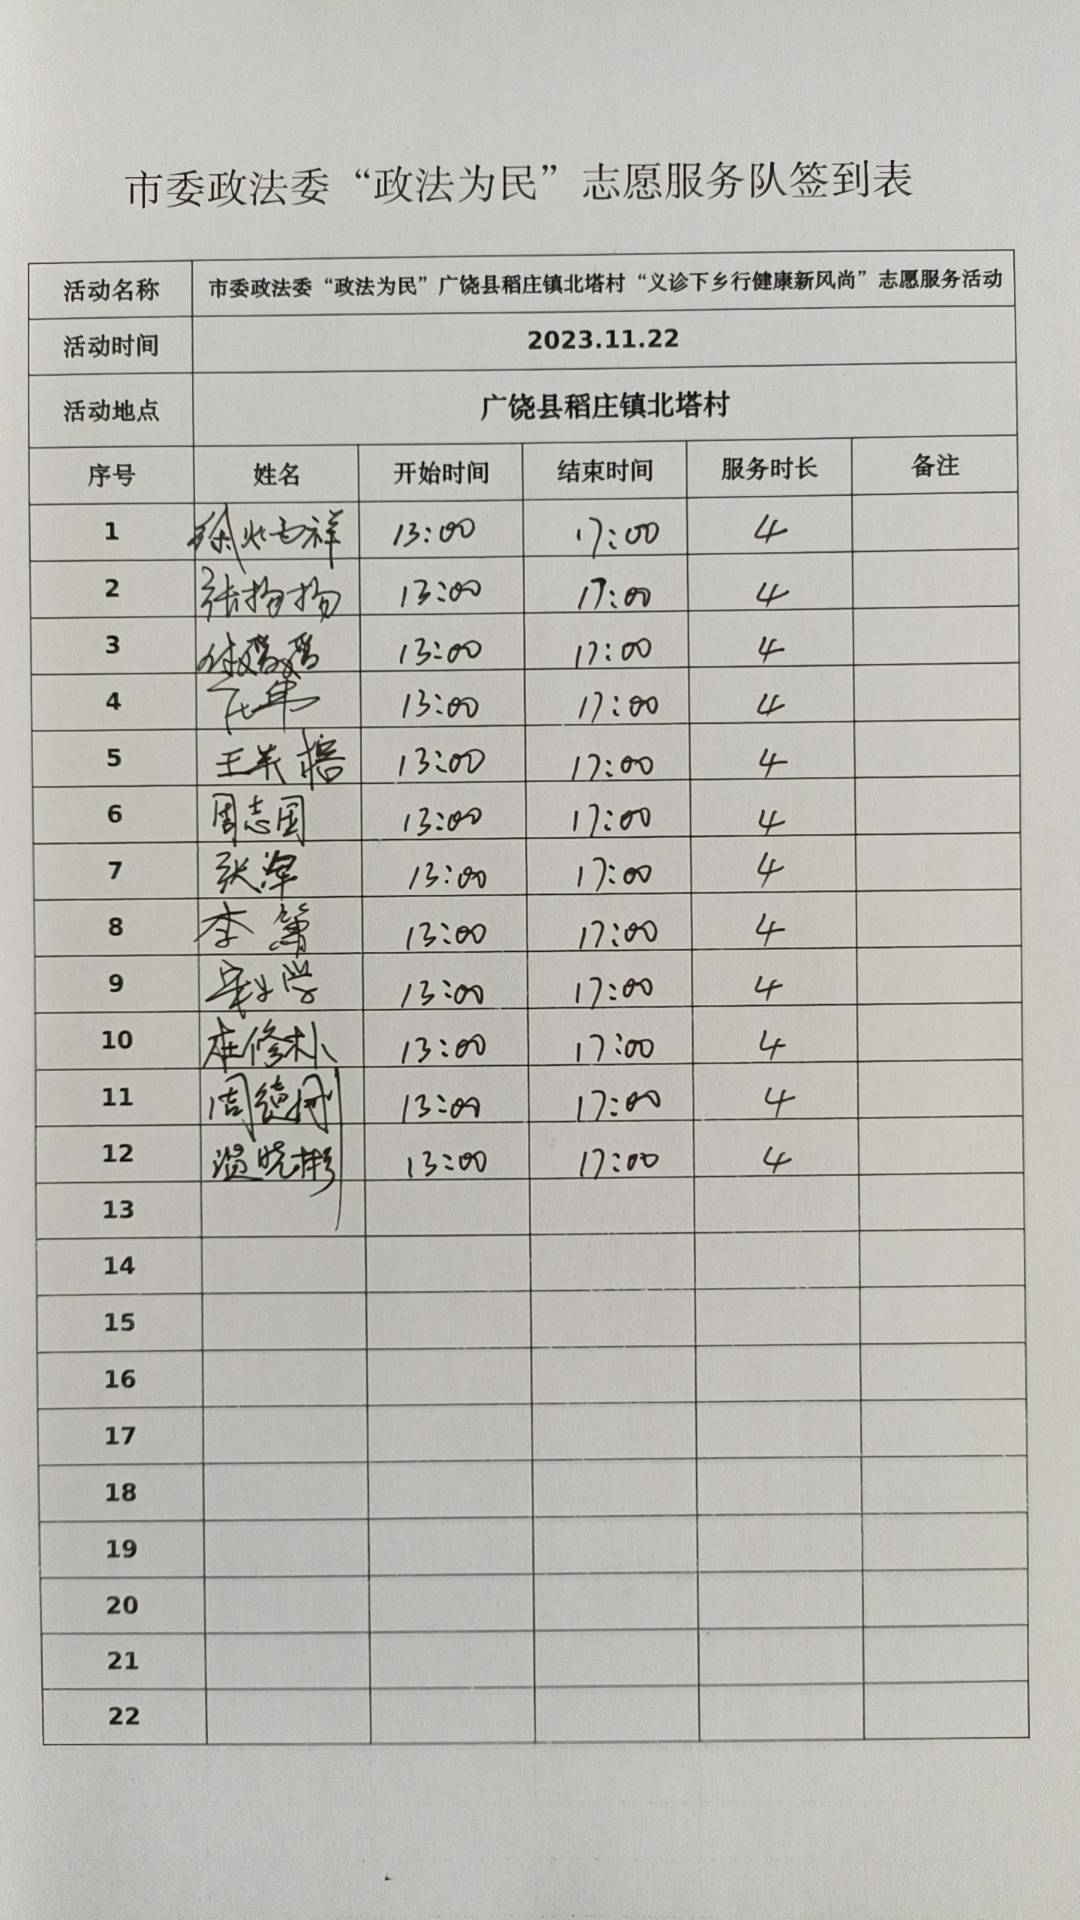 市委政法委“政法为民”志愿服务队签到表
活动名称 市委政法委“政法为民”广饶县稻庄镇北塔村“义诊下乡行健康新风尚”志愿服务活动
活动时间 2023.11.22
活动地点 广饶县稻庄镇北塔村
序号 姓名 开始时间 结束时间 服务时长 备注
1 13:00 17:00 4
2 张扬扬 13:00 17:00 4
3 13:00 17:00 4
4 13:00 17:00 4
5 13:00 17:00 4
6 周志国 13:00 17:00 4
7 13:00 17:00 4
8 13:00 17:00 4
9 13:00 17:00 4
10 13:00 17:00 4
11 13:00 17:00 4
12 温晓彬 13:00 17:00 4
13
14
15
16
17
18
19
20
21
22